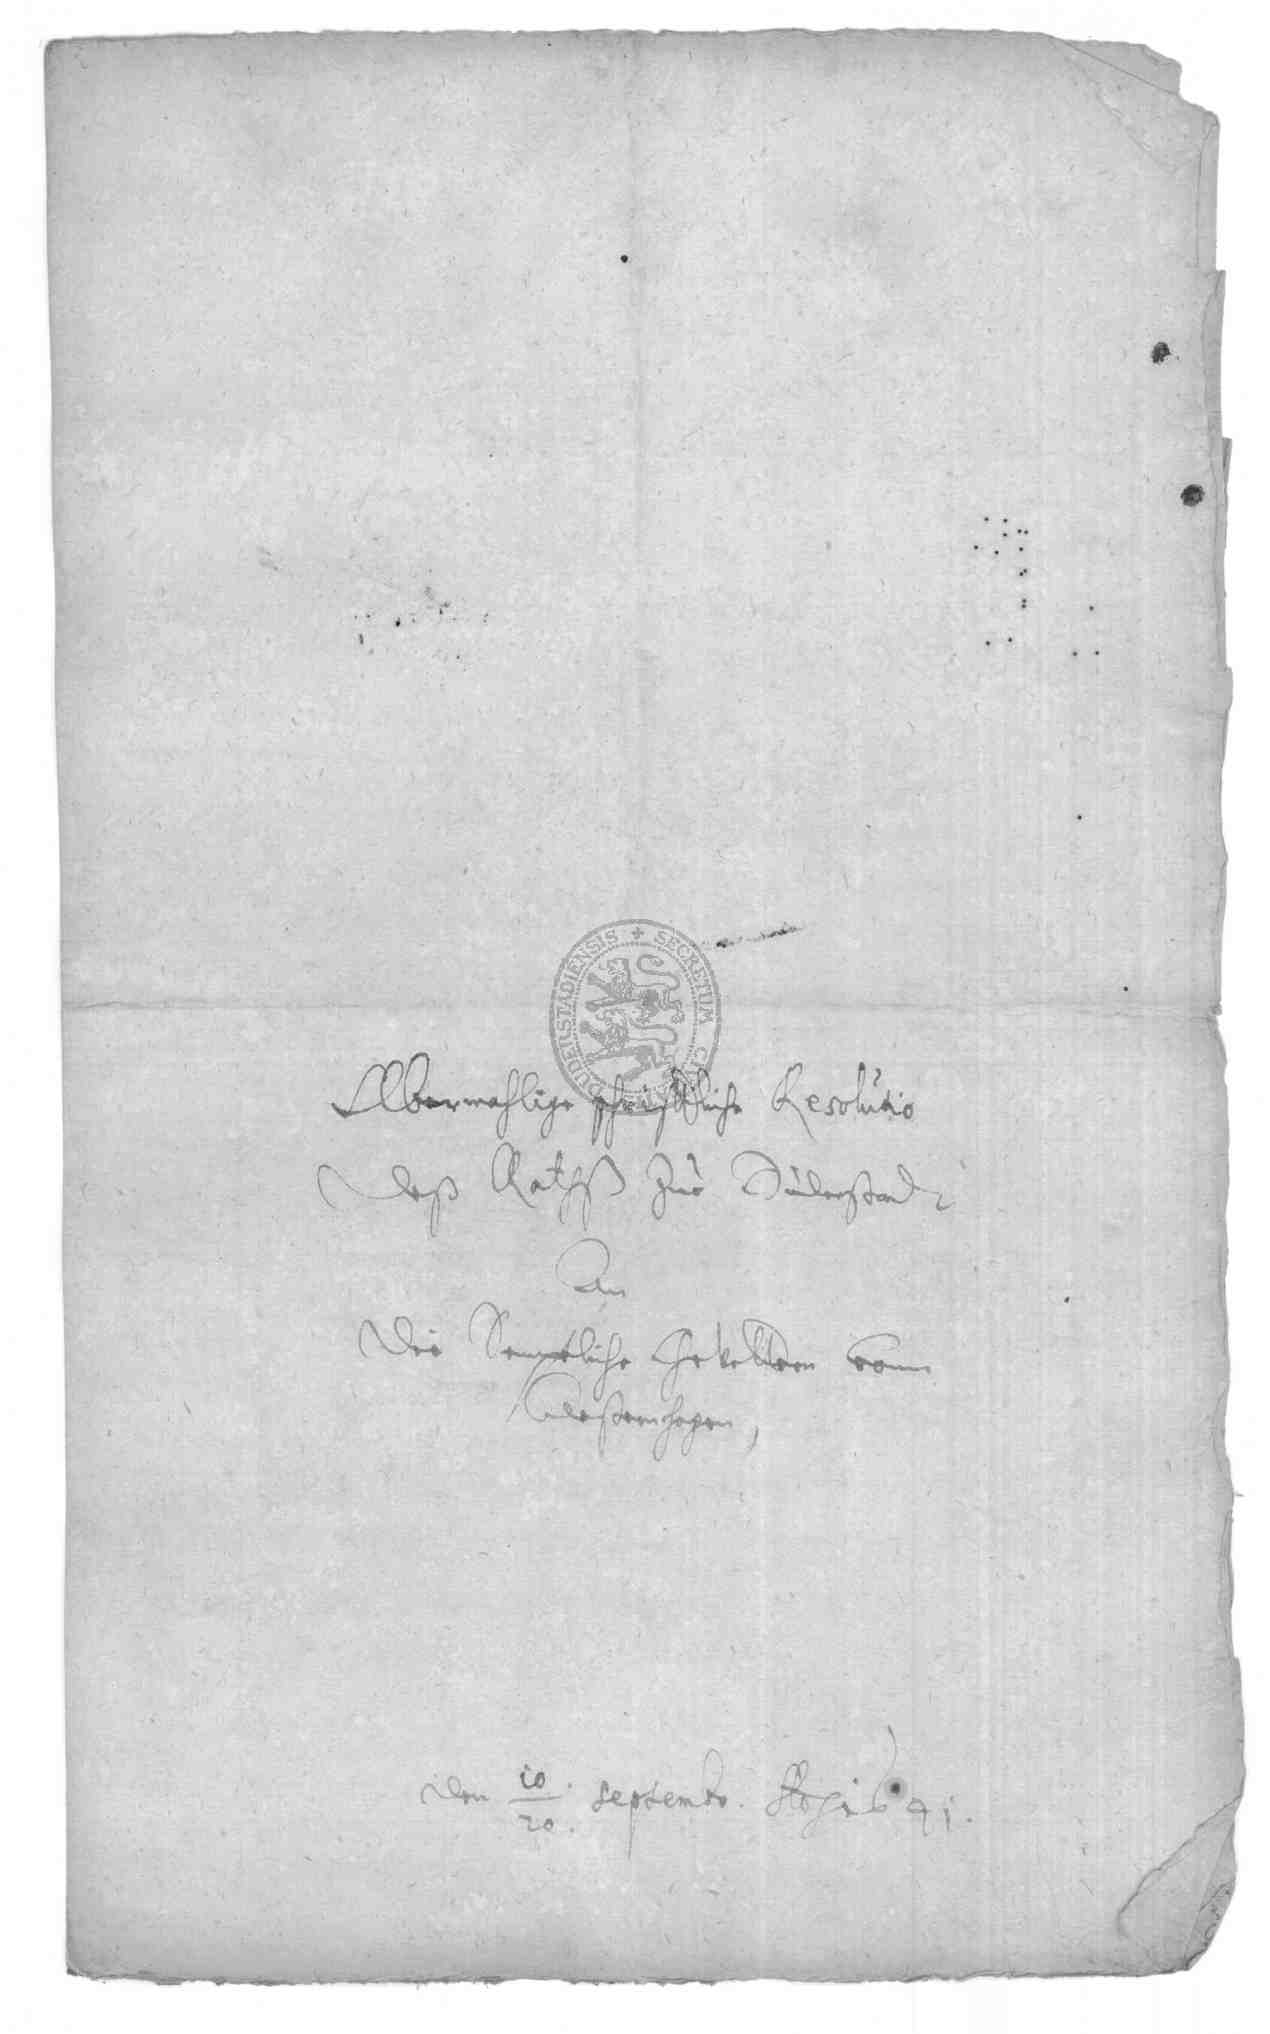 DUDERSTADIENSIS + SECRETUM
Abermahlige schrifftliche Resolutio
deß Rathß zue Duderstadt
An
die Semptliche Gevettern vonn
Westernhagen,
den 10/20. Septembr. 1641.